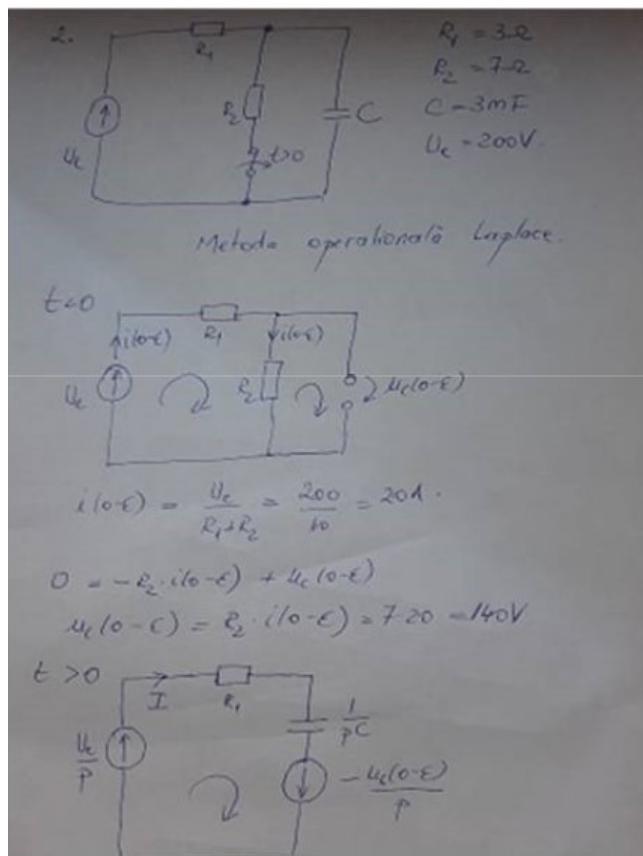 2.
R₁
R₂
C
Ue
t>0
R₁ = 3Ω
R₂ = 7Ω
C = 3mF
Ue = 200V.
Metoda operationalã Laplace.
t<0
i(0-ε)
R₁
i(0-ε)
Ue
R₂
uc(0-ε)
i(0-ε) = Ue/(R₁+R₂) = 200/10 = 20A.
0 = -R₂·i(0-ε) + uc(0-ε)
uc(0-ε) = R₂·i(0-ε) = 7·20 = 140V
t>0
I
R₁
1/pC
Ue/p
-uc(0-ε)/p